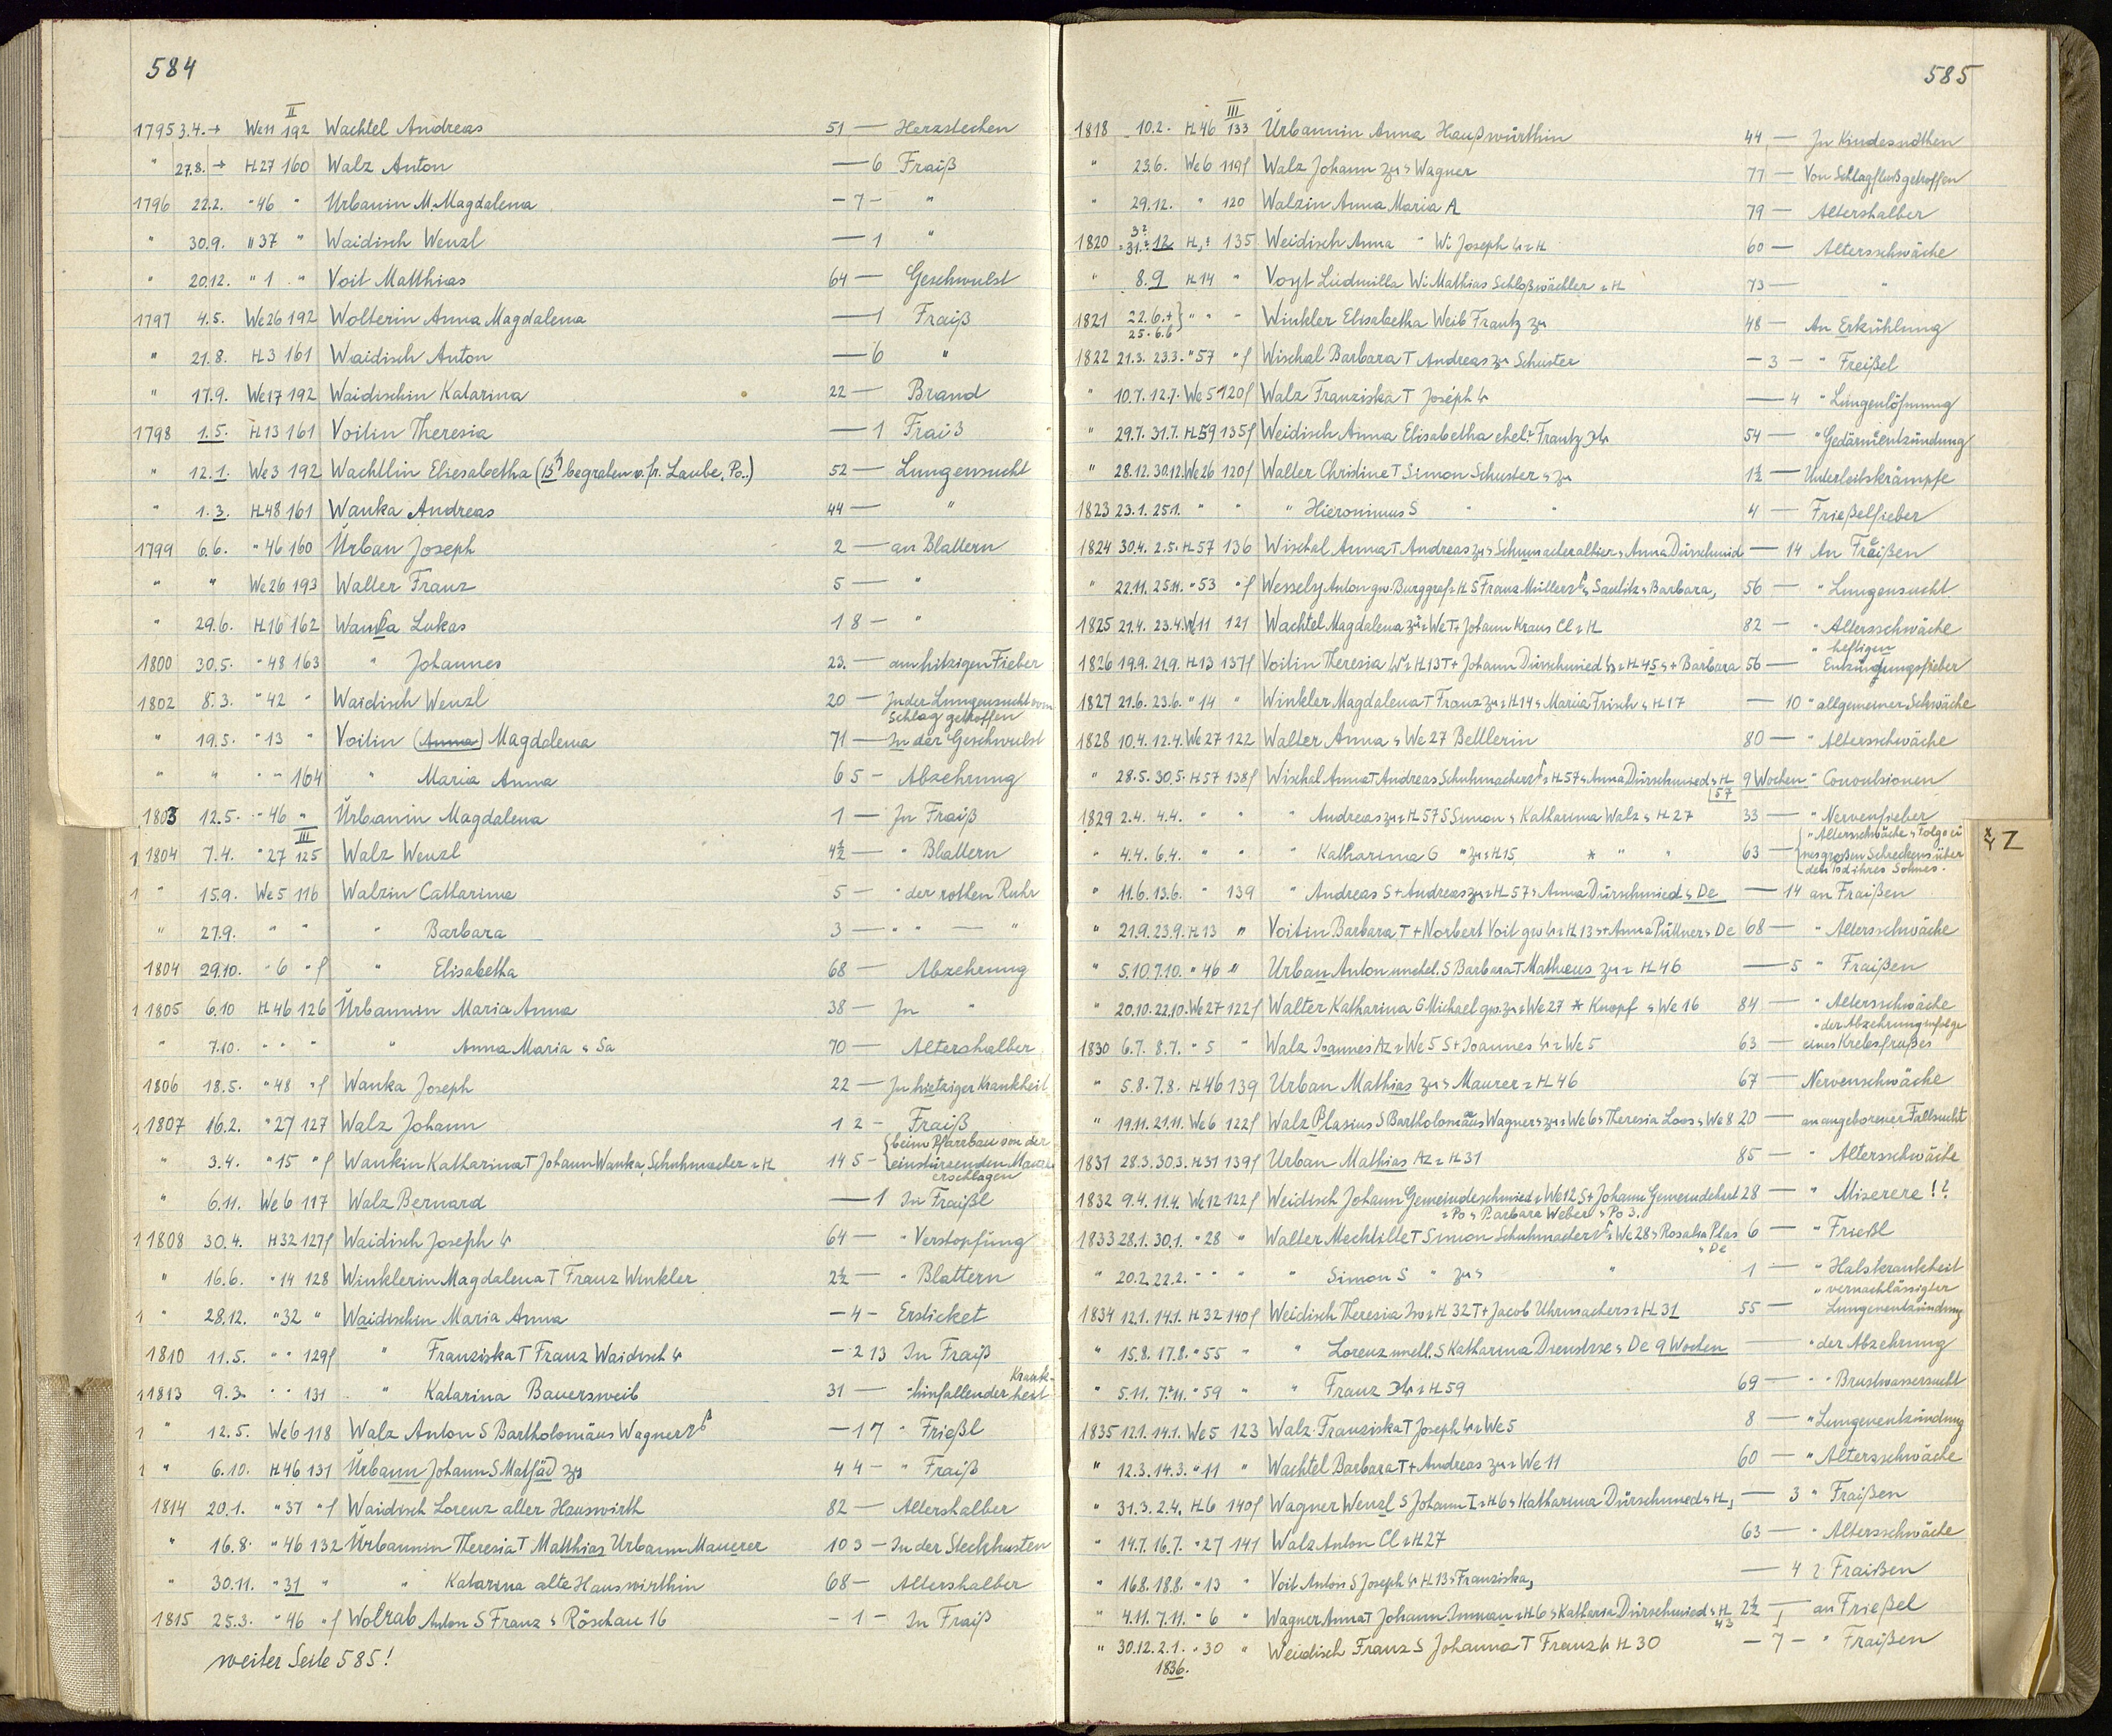 584
II
1795 3.4. → We11 192 Wachtel Andreas 51 — Herzstechen
" 27.8. → H27 160 Walz Anton — 6 Fraiß
1796 22.2. " 46 " Urbanin M. Magdalena - 7 - "
" 30.9. " 37 " Waidisch Wenzl — 1 "
" 20.12. " 1 " Voit Matthias 64 — Geschwulst
1797 4.5. We26 192 Wolterin Anna Magdalena — 1 Fraiß
" 21.8. H3 161 Waidisch Anton — 6 "
" 17.9. We17 192 Waidischin Katarina 22 — Brand
1798 1.5. H13 161 Voitin Theresia — 1 Fraiß
" 12.1. We3 192 Wachtlin Eliesabetha (15 begraben v. fr. Laube, Po.) 52 — Lungensucht
" 1.3. H48 161 Wanka Andreas 44 — "
1799 6.6. " 46 160 Urban Joseph 2 — an Blattern
" " We26 193 Walter Franz 5 — "
" 29.6. H16 162 Wanka Lukas 1 8 - "
1800 30.5. " 48 163 " Johannes 23. — am hitzigen Fieber
1802 8.3. " 42 " Waidisch Wenzl 20 — In der Lungensucht vom
Schlag getroffen
" 19.5. " 13 " Voitin (Anna) Magdalena 71 — In der Geschwulst
" " " " 164 " Maria Anna 6 5 - Abzehrung
1803 12.5. " 46 " Urbanin Magdalena 1 — In Fraiß
III
1 1804 7.4. " 27 125 Walz Wenzl 4½ — " Blattern
1 " 15.9. We5 116 Walzin Catharina 5 — " der rothen Ruhr
" 27.9. " " " Barbara 3 — " " — "
1804 29.10. " 6 " f " Elisabetha 68 — Abzehrung
1 1805 6.10 H46 126 Urbannin Maria Anna 38 — In "
" 7.10. " " " " Anna Maria Sa 70 — Altershalber
1806 18.5. " 48 " f Wanka Joseph 22 — In hietziger Krankheit
1 1807 16.2. " 27 127 Walz Johann 1 2 - Fraiß
" 3.4. " 15 " f Wankin Katharina T Johann Wanka, Schuhmacher H 14 5 - beim Pfarrbau von der
einstürzenden Mauer
erschlagen
" 6.11. We6 117 Walz Bernard — 1 In Fraißl
1 1808 30.4. H32 127f Waidisch Joseph 64 — " Verstopfung
" 16.6. " 14 128 Winklerin Magdalena T Franz Winkler 2½ — " Blattern
1 " 28.12. " 32 " Waidischin Maria Anna - 4 - Ersticket
1810 11.5. " " 129f " Franziska T Franz Waidisch - 2 13 In Fraiß
1 1813 9.3. " " 131 " Katarina Bauersweib 31 — " hinfallender Krank-
heit
1 " 12.5. We6 118 Walz Anton S Bartholomäus Wagner - 1 7 " Frießl
1 " 6.10. H46 131 Urbann Johann S Mathäd 4 4 - " Fraiß
1814 20.1. " 37 " f Waidisch Lorenz alter Hauswirth 82 — Altershalber
" 16.8. " 46 132 Urbannin Theresia T Matthias Urbann Mauerer 10 3 — In der Steckhusten
" 30.11. " 31 " " Katarina alte Hauswirthin 68 — Altershalber
1815 25.3. " 46 " f Wolrab Anton S Franz Röschau 16 - 1 - In Fraiß
weiter Seite 585!
585
III
1818 10.2. H46 133 Urbannin Anna Haußwürthin 44 — In Kindesnöthen
" 23.6. We6 119f Walz Johann Wagner 77 — Von Schlagfluß getroffen
" 29.12. " 120 Walzin Anna Maria A 79 — Altershalber
1820 31.12 H 135 Weidisch Anna " Wi Joseph H 60 — Altersschwäche
" 8.9 H14 " Voyt Ludmilla Wi Mathias Schloßwächter H 73 — "
1821 22.6.+ 25.6.b " " " Winkler Elisabetha Weib Frantz 48 — An Erkühlung
1822 21.3. 23.3. " 57 " f Wischal Barbara T Andreas Schuster - 3 - " Freißel
" 10.7. 12.7. We5 120f Walz Franziska T Joseph — 4 " Lungenlöhmung
" 29.7. 31.7. H59 135f Weidisch Anna Elisabetha ehel. Frantz 54 — " Gedärmentzündung
" 28.12. 30.12. We26 120f Walter Christine T Simon Schuster 1½ — Unterleibskrämpfe
1823 23.1. 25.1. " " " Hieronimus S " " 4 — Frießelfieber
1824 30.4. 2.5. H57 136 Wischal Anna T Andreas Schumacher allhier Anna Dürschmid — 14 An Fraißen
" 22.11. 25.11. " 53 " f Wessely Anton gw. Burggraf H S Franz Müllers Saulitz Barbara, 56 — " Lungensucht
1825 21.4. 23.4. We11 121 Wachtel Magdalena We T+ Johann Kraus Cl H 82 — " Altersschwäche
1826 19.9. 21.9. H13 137f Voitin Theresia H13 T+ Johann Dürschmied H45 + Barbara 56 — " heftigen
Entzündungsfieber
1827 21.6. 23.6. " 14 " Winkler Magdalena T Franz H14 Maria Frisch H17 — 10 " allgemeiner Schwäche
1828 10.4. 12.4. We27 122 Walter Anna We27 Bettlerin 80 — " Altersschwäche
" 28.5. 30.5. H57 138f Wischal Anna T Andreas Schuhmachers H57 Anna Dürschmied H 57 9 Wochen " Convulsionen
1829 2.4. 4.4. " " " Andreas H57 S Simon Katharina Walz H27 33 — " Nervenfieber
" 4.4. 6.4. " " " Katharina G " H15 * " " 63 — " Altersschwäche Folge ei
nes großen Schreckens über
den Tod ihres Sohnes.
Z
" 11.6. 13.6. " 139 " Andreas S+ Andreas H57 Anna Dürschmied De — 14 an Fraißen
" 21.9. 23.9. H13 " Voitin Barbara T+ Norbert Voit gw H13 + Anna Püttner De 68 — " Altersschwäche
" 5.10. 7.10. " 46 " Urban Anton unehel. S Barbara T Matheus H46 — 5 " Fraißen
" 20.10. 22.10. We27 122f Walter Katharina G Michael gw. We27 * Knopf We16 84 — " Altersschwäche
1830 6.7. 8.7. " 5 " Walz Joannes Az We5 S+ Joannes We5 63 — " der Abzehrung infolge
eines Krebsfraßes
" 5.8. 7.8. H46 139 Urban Mathias Maurer H46 67 — Nervenschwäche
" 19.11. 21.11. We6 122f Walz Plasius S Bartholomäus Wagner We6 Theresia Loos We8 20 — an angeborener Fallsucht
1831 28.3. 30.3. H31 139f Urban Mathias Az H31 85 — " Altersschwäche
1832 9.4. 11.4. We12 122f Weidisch Johann Gemeindeschmied We12 S+ Johann Gemeindehirt 28 — " Miserere !?
Po Barbara Weber Po 3.
1833 28.1. 30.1. " 28 " Walter Mechtille T Simon Schuhmachers We28 Rosalia Plas 6 — " Frießl
De
" 20.2. 22.2. " " " " Simon S " " 1 — " Halskrankheit
1834 12.1. 14.1. H32 140f Weidisch Theresia H32 T+ Jacob Uhrmachers H31 55 — " vernachlässigter
Lungenentzündung
" 15.8. 17.8. " 55 " " Lorenz unell. S Katharina De 9 Wochen — " der Abzehrung
" 5.11. 7.11. " 59 " " Franz H59 69 — " Brustwassersucht
1835 12.1. 14.1. We5 123 Walz Franziska T Joseph We5 8 — " Lungenentzündung
" 12.3. 14.3. " 11 " Wachtel Barbara T+ Andreas We11 60 — " Altersschwäche
" 31.3. 2.4. H6 140f Wagner Wenzl S Johann I H6 Katharina Dürschmied H, — 3 " Fraißen
" 14.7. 16.7. " 27 141 Walz Anton Cl H27 63 — " Altersschwäche
" 16.8. 18.8. " 13 " Voit Anton S Joseph H13 Franziska, — 4 Fraißen
" 4.11. 7.11. " 6 " Wagner Anna T Johann Inman H6 Katharia Dürschmied H 43 2½ — an Frießel
" 30.12. 2.1. " 30 " Weidisch Franz S Johanna T Franz H30 - 7 - " Fraißen
1836.